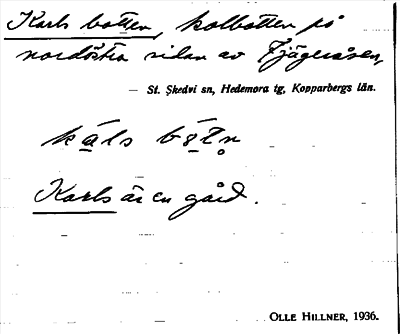 Karls botten, kolbotten på
nordöstra sidan av Fjägeråsen,
— St. Skedvi sn, Hedemora tg, Kopparbergs län.
Karls är en gård.
OLLE HILLNER, 1936.